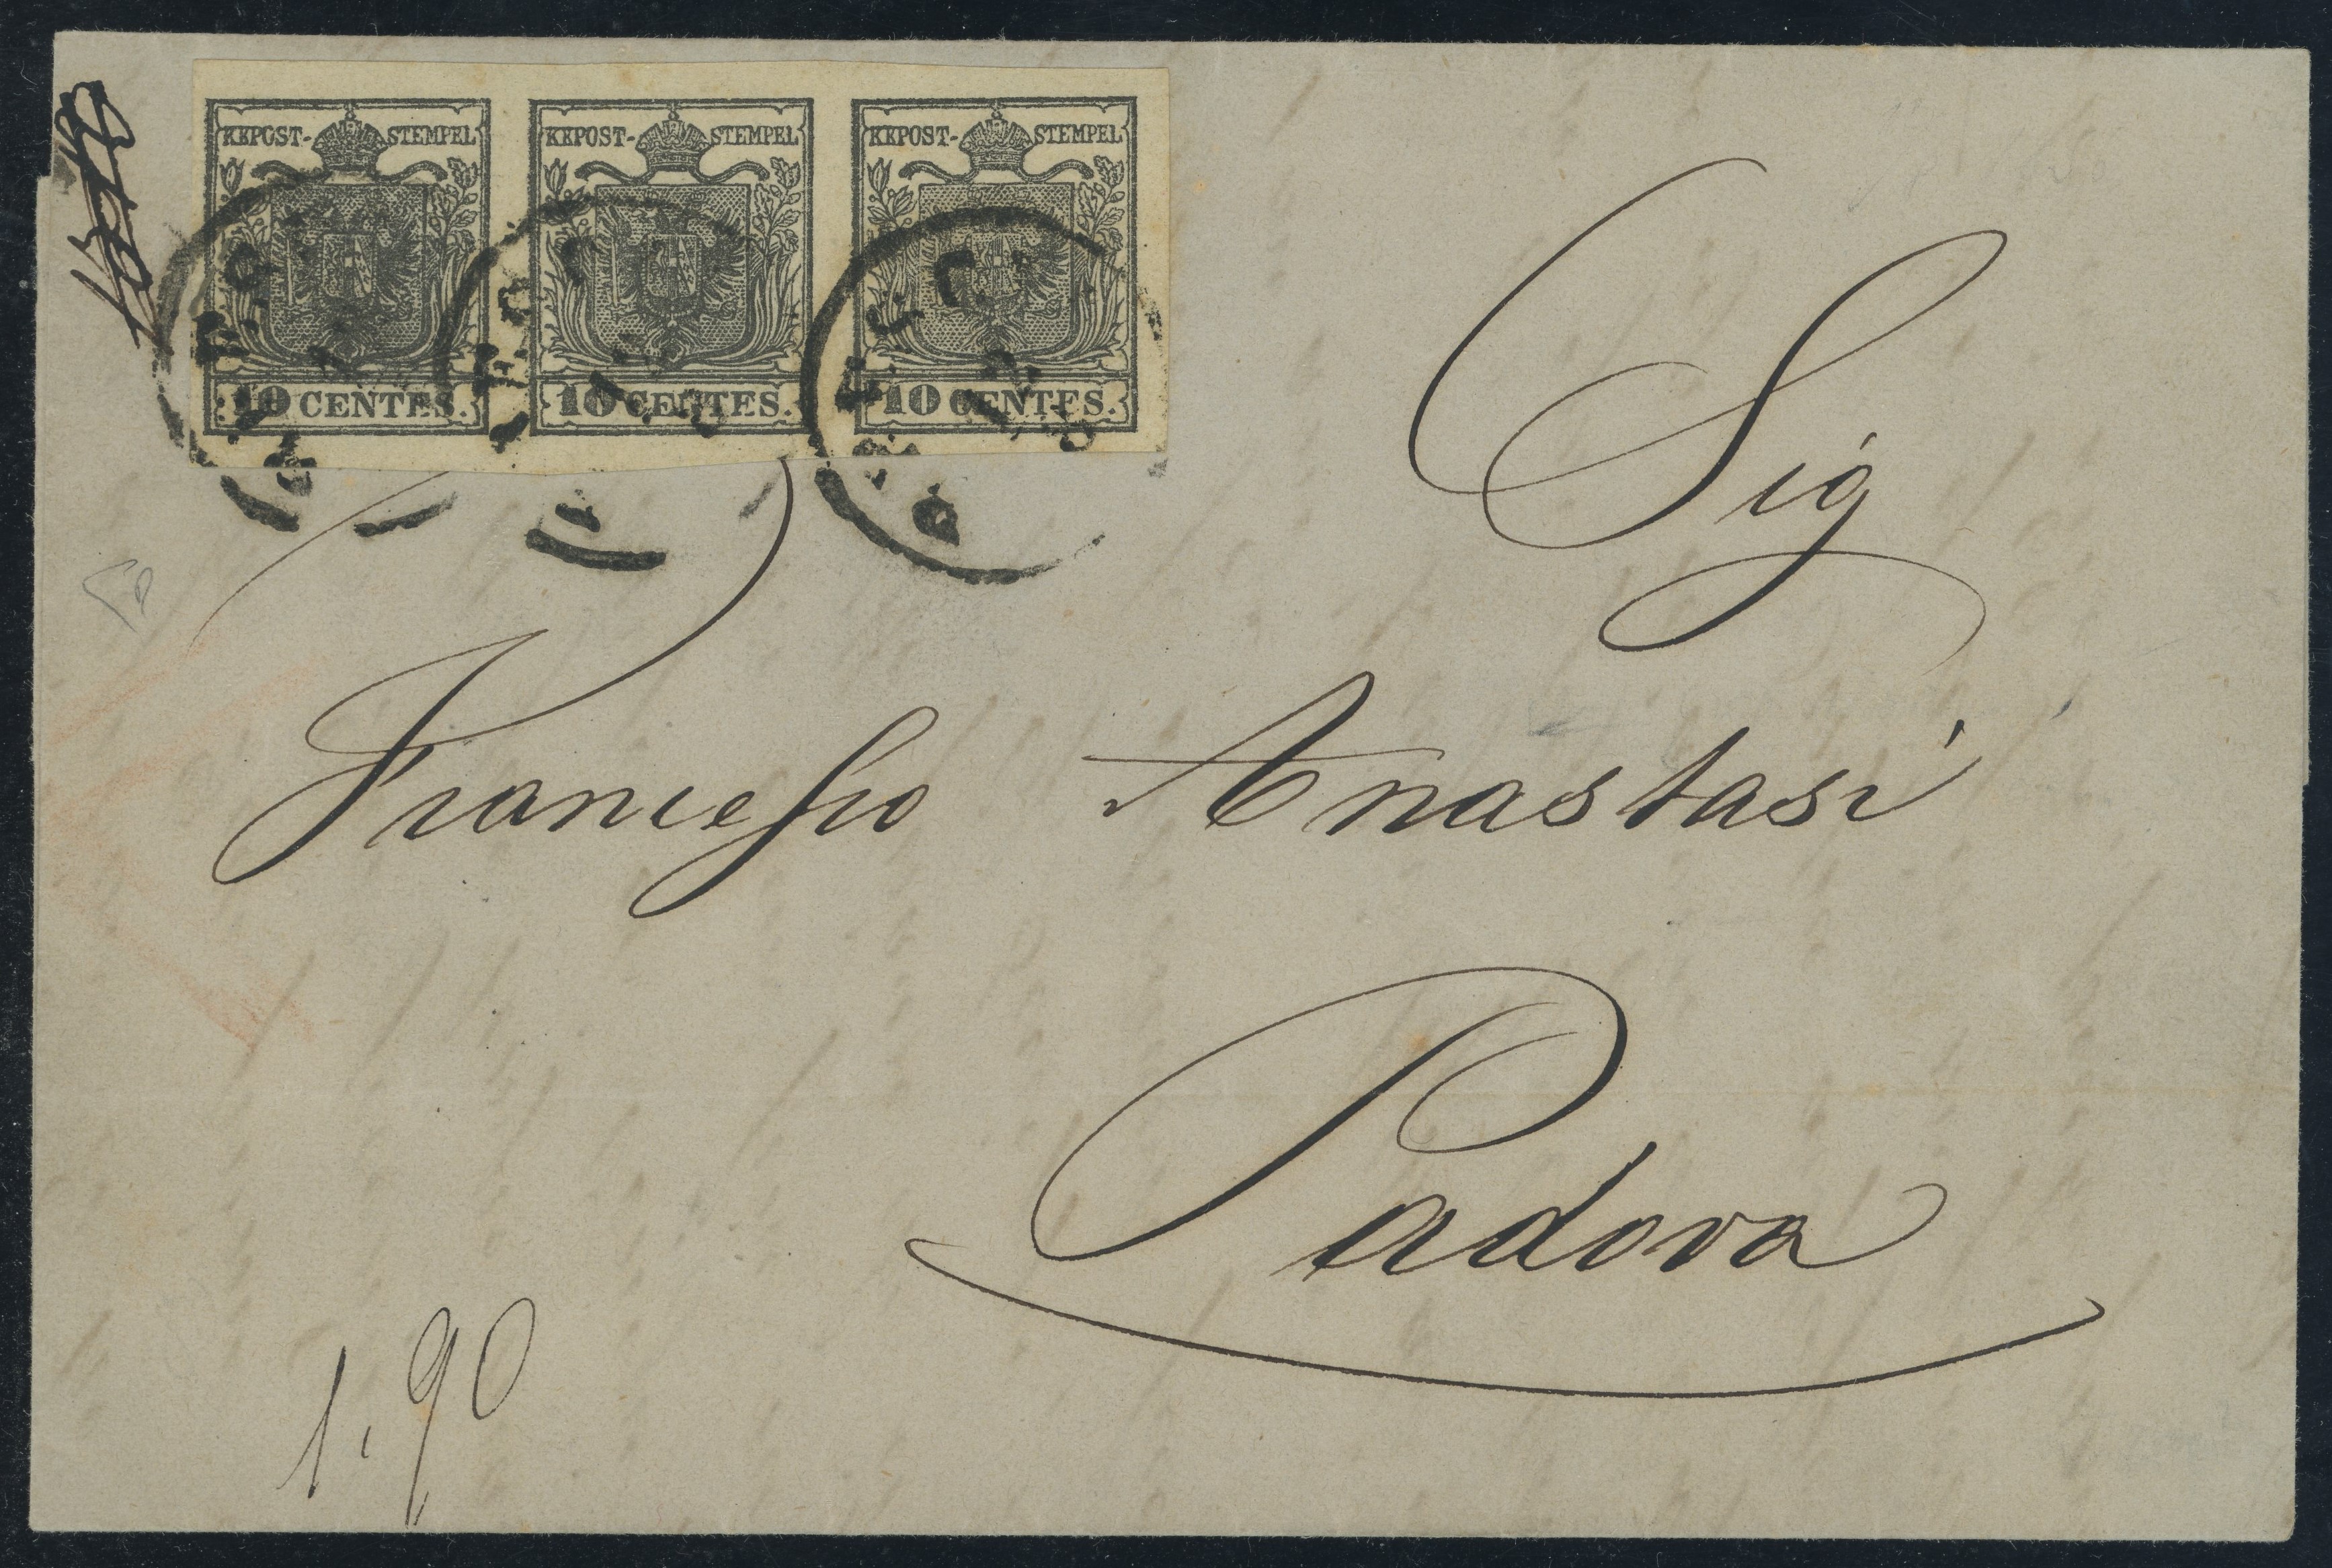 KKPOST-STEMPEL KKPOST-STEMPEL KKPOST-STEMPEL
10 CENTES. 10 CENTES. 10 CENTES.
Sig
Francesco Anastasi
Padova
1.90